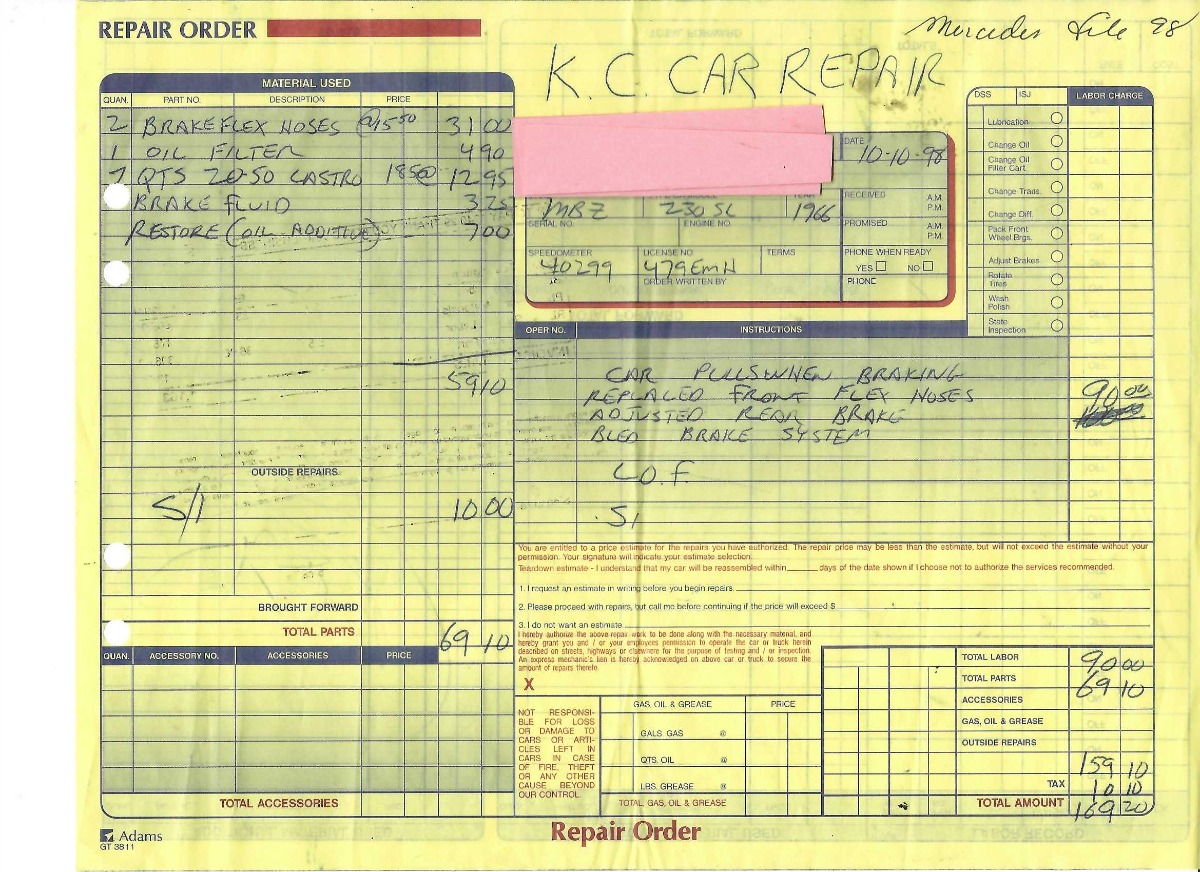 REPAIR ORDER
Mercedes File 98
K.C. CAR REPAIR
MATERIAL USED
QUAN. PART NO. DESCRIPTION PRICE
2 BRAKE FLEX HOSES @15.50 31 00
1 OIL FILTER 4 90
7 QTS 20-50 CASTRO 185@ 12 95
BRAKE FLUID 3 25
RESTORE (OIL ADDITIVE) 7 00
59 10
OUTSIDE REPAIRS
S/1 10 00
BROUGHT FORWARD
TOTAL PARTS 69 10
QUAN. ACCESSORY NO. ACCESSORIES PRICE
TOTAL ACCESSORIES
Adams
GT 3811
DATE
10-10-98
RECEIVED A.M. P.M.
MBZ 230 SL 1966
SERIAL NO. ENGINE NO. PROMISED A.M. P.M.
SPEEDOMETER LICENSE NO TERMS PHONE WHEN READY
40299 479EMH YES NO
ORDER WRITTEN BY PHONE
DSS ISJ LABOR CHARGE
Lubrication
Change Oil
Change Oil Filter Cart.
Change Trans.
Change Diff.
Pack Front Wheel Brgs.
Adjust Brakes
Rotate Tires
Wash Polish
State Inspection
OPER NO. INSTRUCTIONS
CAR PULLS WHEN BRAKING
REPLACED FRONT FLEX HOSES 90.00
ADJUSTED REAR BRAKE
BLED BRAKE SYSTEM
L.O.F.
You are entitled to a price estimate for the repairs you have authorized. The repair price may be less than the estimate, but will not exceed the estimate without your
permission. Your signature will indicate your estimate selection.
Teardown estimate - I understand that my car will be reassembled within______ days of the date shown if I choose not to authorize the services recommended.
1. I request an estimate in writing before you begin repairs.
2. Please proceed with repairs, but call me before continuing if the price will exceed $
3. I do not want an estimate
I hereby authorize the above repair work to be done along with the necessary material, and
hereby grant you and / or your employees permission to operate the car or truck herein
described on streets, highways or elsewhere for the purpose of testing and / or inspection.
An express mechanic's lien is hereby acknowledged on above car or truck to secure the
amount of repairs thereto.
X
NOT RESPONSI-
BLE FOR LOSS
OR DAMAGE TO
CARS OR ARTI-
CLES LEFT IN
CARS IN CASE
OF FIRE, THEFT
OR ANY OTHER
CAUSE BEYOND
OUR CONTROL.
GAS, OIL & GREASE PRICE
GALS. GAS @
QTS. OIL @
LBS. GREASE @
TOTAL, GAS, OIL & GREASE
TOTAL LABOR 90 00
TOTAL PARTS 69 10
ACCESSORIES
GAS, OIL & GREASE
OUTSIDE REPAIRS
159 10
TAX 10 10
TOTAL AMOUNT 169 20
Repair Order